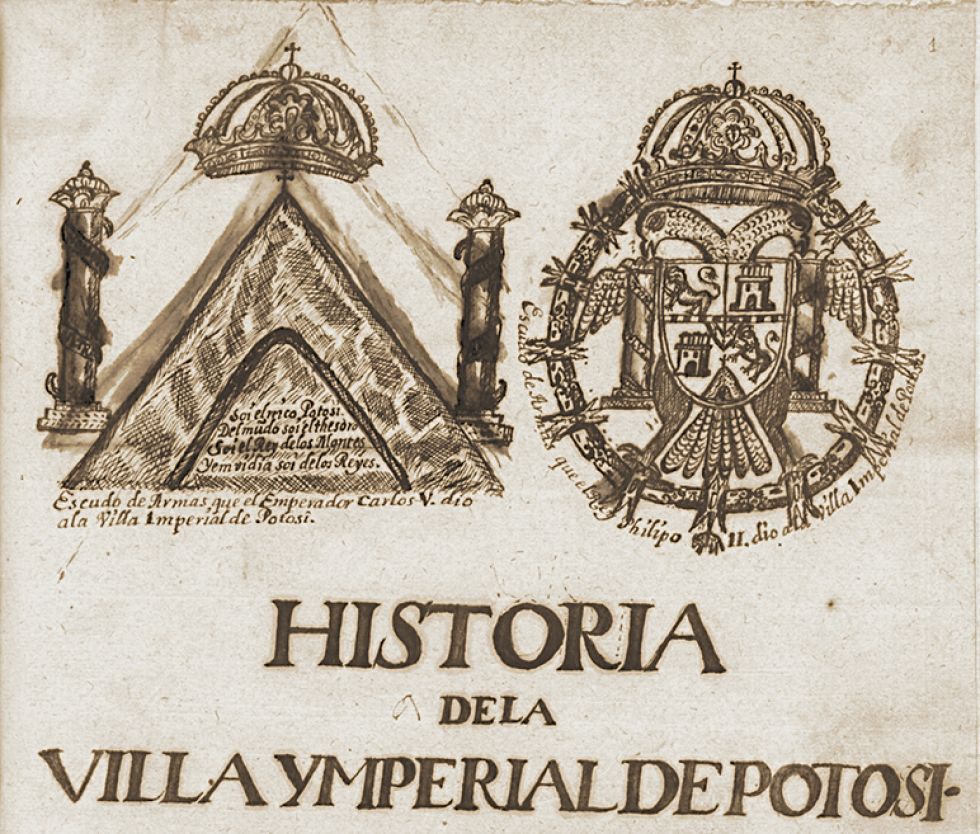 1
Soi el rico Potosi.
Del mũdo soi el thesoro
Soi el Rey de los Montes
Y emvidia soi de los Reyes.
Escudo de Armas que el Emperador Carlos V. dio
a la Villa Imperial de Potosi.
Escudo de Armas que el Rey Philipo II. dio a la Villa Imperial de Potosi
HISTORIA
DE LA
VILLA YMPERIAL DE POTOSI-